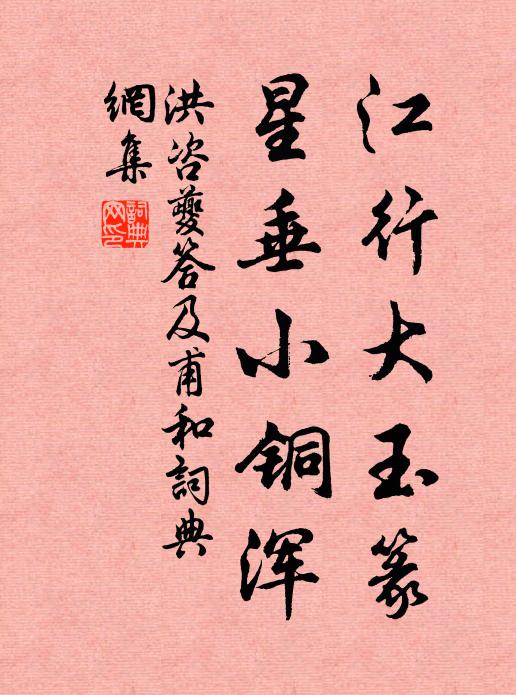 江行大玉篆
星垂小铜浑
洪咨夔答及甫和詞典
網集
詞典
网印